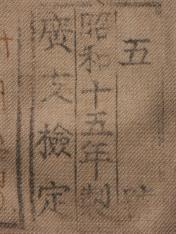 五
昭和十五年製
廣支檢定